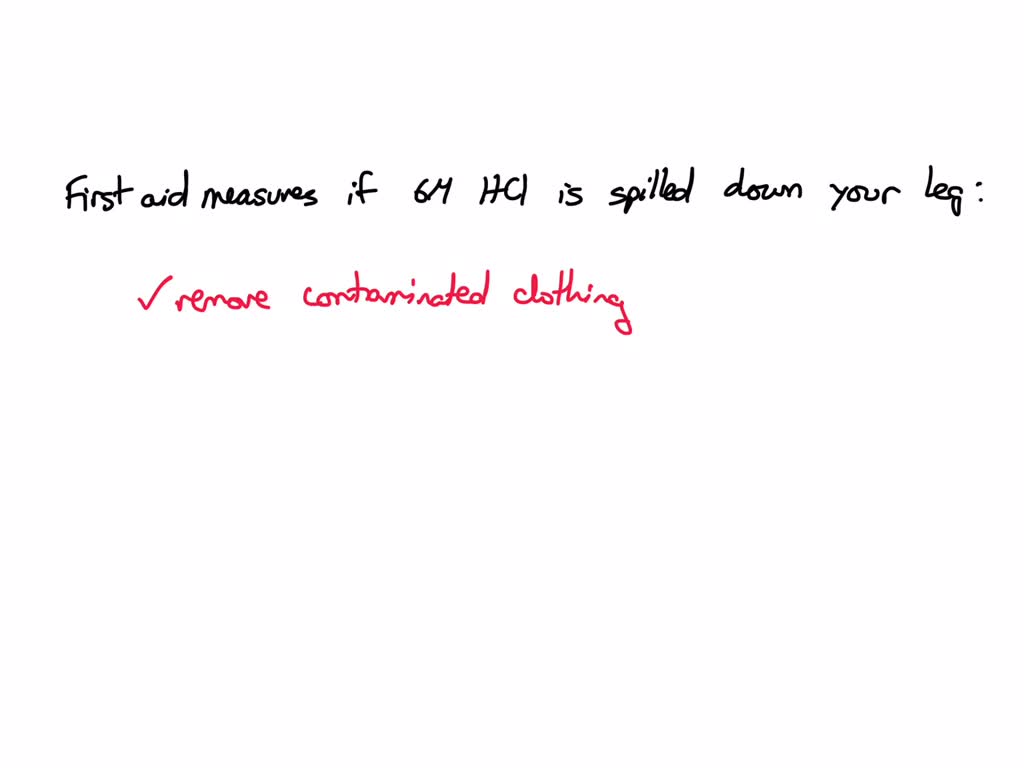 First aid measures if 6M HCl is spilled down your leg:
✓ remove contaminated clothing